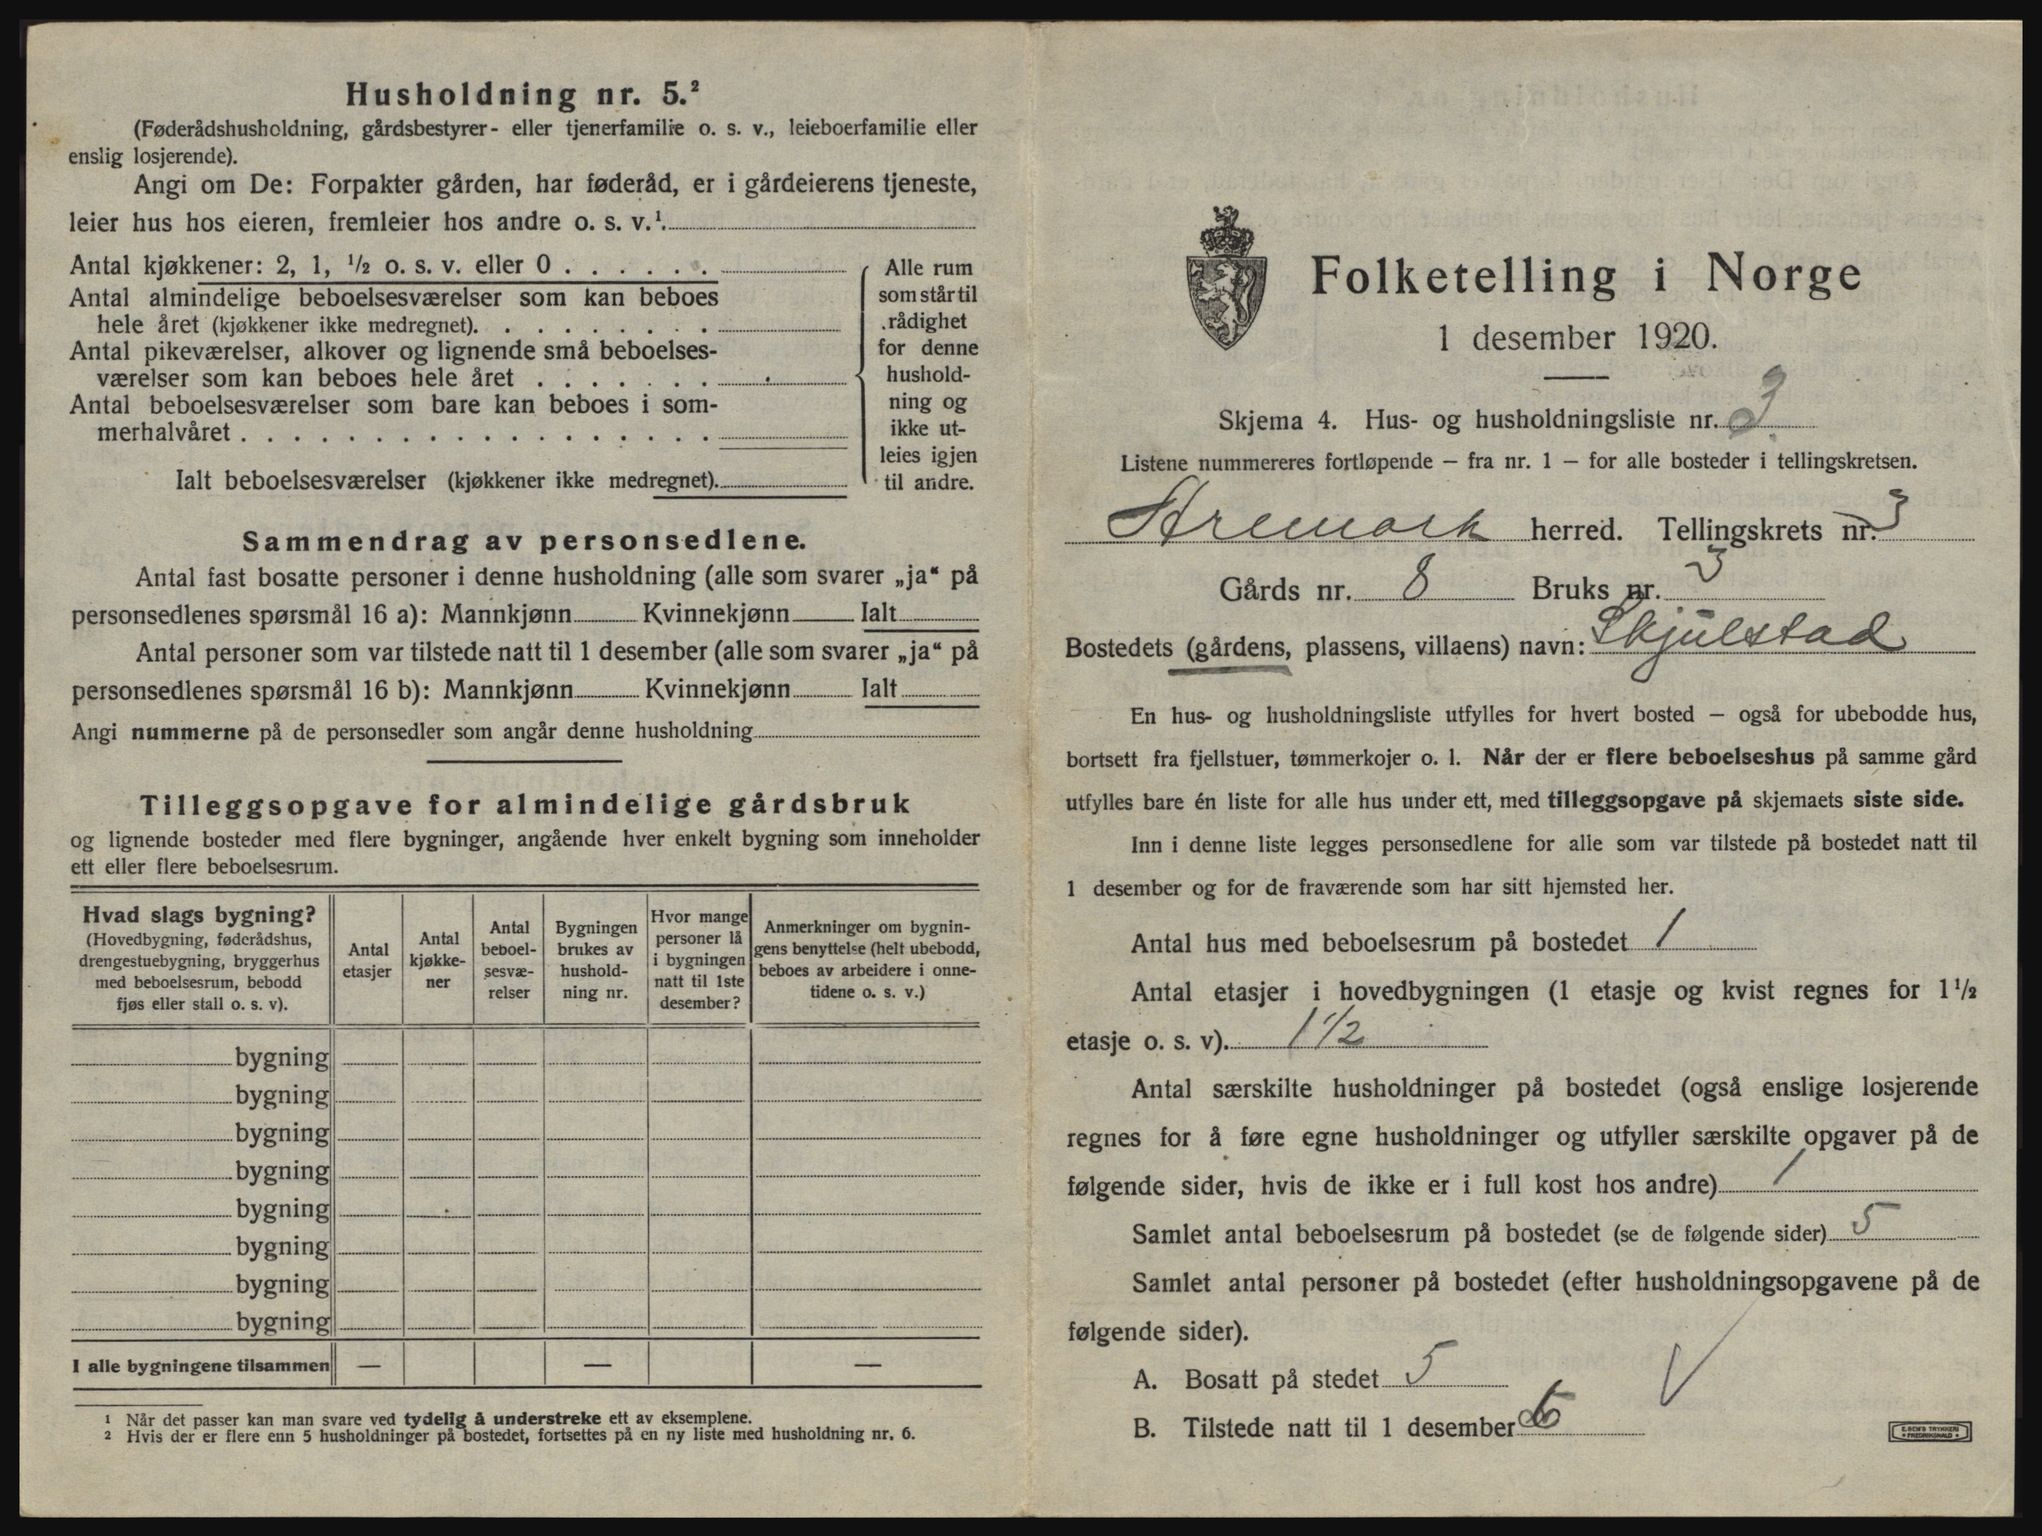 Husholdning nr. 5.²
(Føderådshusholdning, gårdsbestyrer- eller tjenerfamilie o. s. v., leieboerfamilie eller
enslig losjerende).
Angi om De: Forpakter gården, har føderåd, er i gårdeierens tjeneste,
leier hus hos eieren, fremleier hos andre o. s. v.¹.
Antal kjøkkener: 2, 1, ½ o. s. v. eller 0 . . . . . .
Antal almindelige beboelsesværelser som kan beboes
hele året (kjøkkener ikke medregnet). . . . . . . . .
Antal pikeværelser, alkover og lignende små beboelses-
værelser som kan beboes hele året . . . . . . .
Antal beboelsesværelser som bare kan beboes i som-
merhalvåret . . . . . . . . . . . . . . . . . .
Ialt beboelsesværelser (kjøkkener ikke medregnet).
Alle rum
som står til
rådighet
for denne
hushold-
ning og
ikke ut-
leies igjen
til andre.
Sammendrag av personsedlene.
Antal fast bosatte personer i denne husholdning (alle som svarer „ja“ på
personsedlenes spørsmål 16 a): Mannkjønn Kvinnekjønn Ialt
Antal personer som var tilstede natt til 1 desember (alle som svarer „ja“ på
personsedlenes spørsmål 16 b): Mannkjønn Kvinnekjønn Ialt
Angi nummerne på de personsedler som angår denne husholdning
Tilleggsopgave for almindelige gårdsbruk
og lignende bosteder med flere bygninger, angående hver enkelt bygning som inneholder
ett eller flere beboelsesrum.
Hvad slags bygning?
(Hovedbygning, føderådshus,
drengestuebygning, bryggerhus
med beboelsesrum, bebodd
fjøs eller stall o. s. v).
Antal
etasjer
Antal
kjøkke-
ner
Antal
beboel-
sesvæ-
relser
Bygningen
brukes av
hushold-
ning nr.
Hvor mange
personer lå
i bygningen
natt til 1ste
desember?
Anmerkninger om bygnin-
gens benyttelse (helt ubebodd,
beboes av arbeidere i onne-
tidene o. s. v.)
bygning
bygning
bygning
bygning
bygning
bygning
bygning
bygning
I alle bygningene tilsammen — — —
1 Når det passer kan man svare ved tydelig å understreke ett av eksemplene.
2 Hvis der er flere enn 5 husholdninger på bostedet, fortsettes på en ny liste med husholdning nr. 6.
Folketelling i Norge
1 desember 1920.
Skjema 4. Hus- og husholdningsliste nr. 3
Listene nummereres fortløpende — fra nr. 1 — for alle bosteder i tellingskretsen.
Aremark herred. Tellingskrets nr. 3
Gårds nr. 8 Bruks nr. 3
Bostedets (gårdens, plassens, villaens) navn: Skjulstad
En hus- og husholdningsliste utfylles for hvert bosted — også for ubebodde hus,
bortsett fra fjellstuer, tømmerkojer o. l. Når der er flere beboelseshus på samme gård
utfylles bare én liste for alle hus under ett, med tilleggsopgave på skjemaets siste side.
Inn i denne liste legges personsedlene for alle som var tilstede på bostedet natt til
1 desember og for de fraværende som har sitt hjemsted her.
Antal hus med beboelsesrum på bostedet 1
Antal etasjer i hovedbygningen (1 etasje og kvist regnes for 1½
etasje o. s. v). 1½
Antal særskilte husholdninger på bostedet (også enslige losjerende
regnes for å føre egne husholdninger og utfyller særskilte opgaver på de
følgende sider, hvis de ikke er i full kost hos andre) 1
Samlet antal beboelsesrum på bostedet (se de følgende sider) 5
Samlet antal personer på bostedet (efter husholdningsopgavene på de
følgende sider).
A. Bosatt på stedet 5
B. Tilstede natt til 1 desember